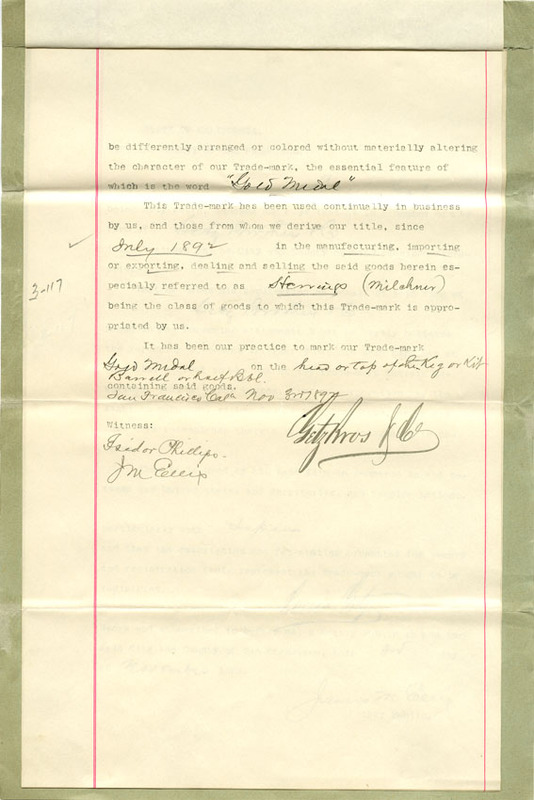 be differently arranged or colored without materially altering
the character of our Trade-mark, the essential feature of
which is the word "Gold Medal"
This Trade-mark has been used continually in business
by us, and those from whom we derive our title, since
July 1892 in the manufacturing, importing
or exporting, dealing and selling the said goods herein es-
3-117
pecially referred to as Herrings (Milchner)
being the class of goods to which this Trade-mark is appro-
priated by us.
It has been our practice to mark our Trade-mark
Gold Medal on the head or top of the Keg or Kit
Barrell or half Bbl.
containing said goods.
San Francisco Cal Nov 3rd 1894
Witness:
Getz Bros & Co
Isidor Phillips.
J M Ellis